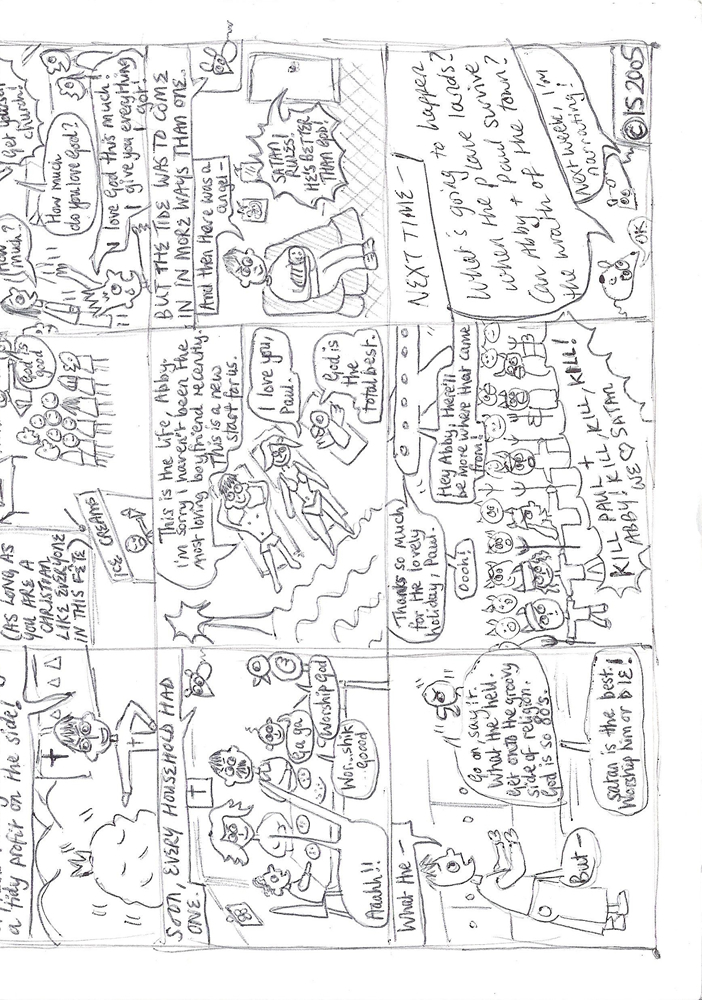 a tidy profit on the side!
(AS LONG AS
YOU ARE A
CHRISTIAN
LIKE EVERYONE
IN THIS FÊTE)
ICE CREAMS
God is
good
Get
church!
How
much..?
How much
do you love God?
I love God this much!
I give you everything
I got!
SOON, EVERY HOUSEHOLD HAD
ONE.
Aaahh!!
Ga ga
Worship God
Wor..shik
goood
This is the life, Abby.
I'm sorry I haven't been the
most loving boyfriend recently.
This is a new
start for us.
I love you,
Paul.
God is
the
total best.
BUT THE TIDE WAS TO COME
IN IN MORE WAYS THAN ONE.
And then there was a
angel—
SATAN
RULES!
HE'S BETTER
THAN GOD!
What the—
But—
Go on, say it.
What the hell.
Get onto the groovy
side of religion.
God is so 80's.
Satan is the best.
Worship him or DIE!
Thanks so much
for the lovely
holiday, Paul.
Oooh!
Hey Abby, there'll
be more where that came
from!
KILL PAUL +
ABBY! KILL, KILL, KILL!
WE ♡ SATAN
NEXT TIME—
What's going to happen
when the plane lands?
Can Abby + Paul survive
the wrath of the town?
Next week, I'm
narrating!
OK
© IS 2005